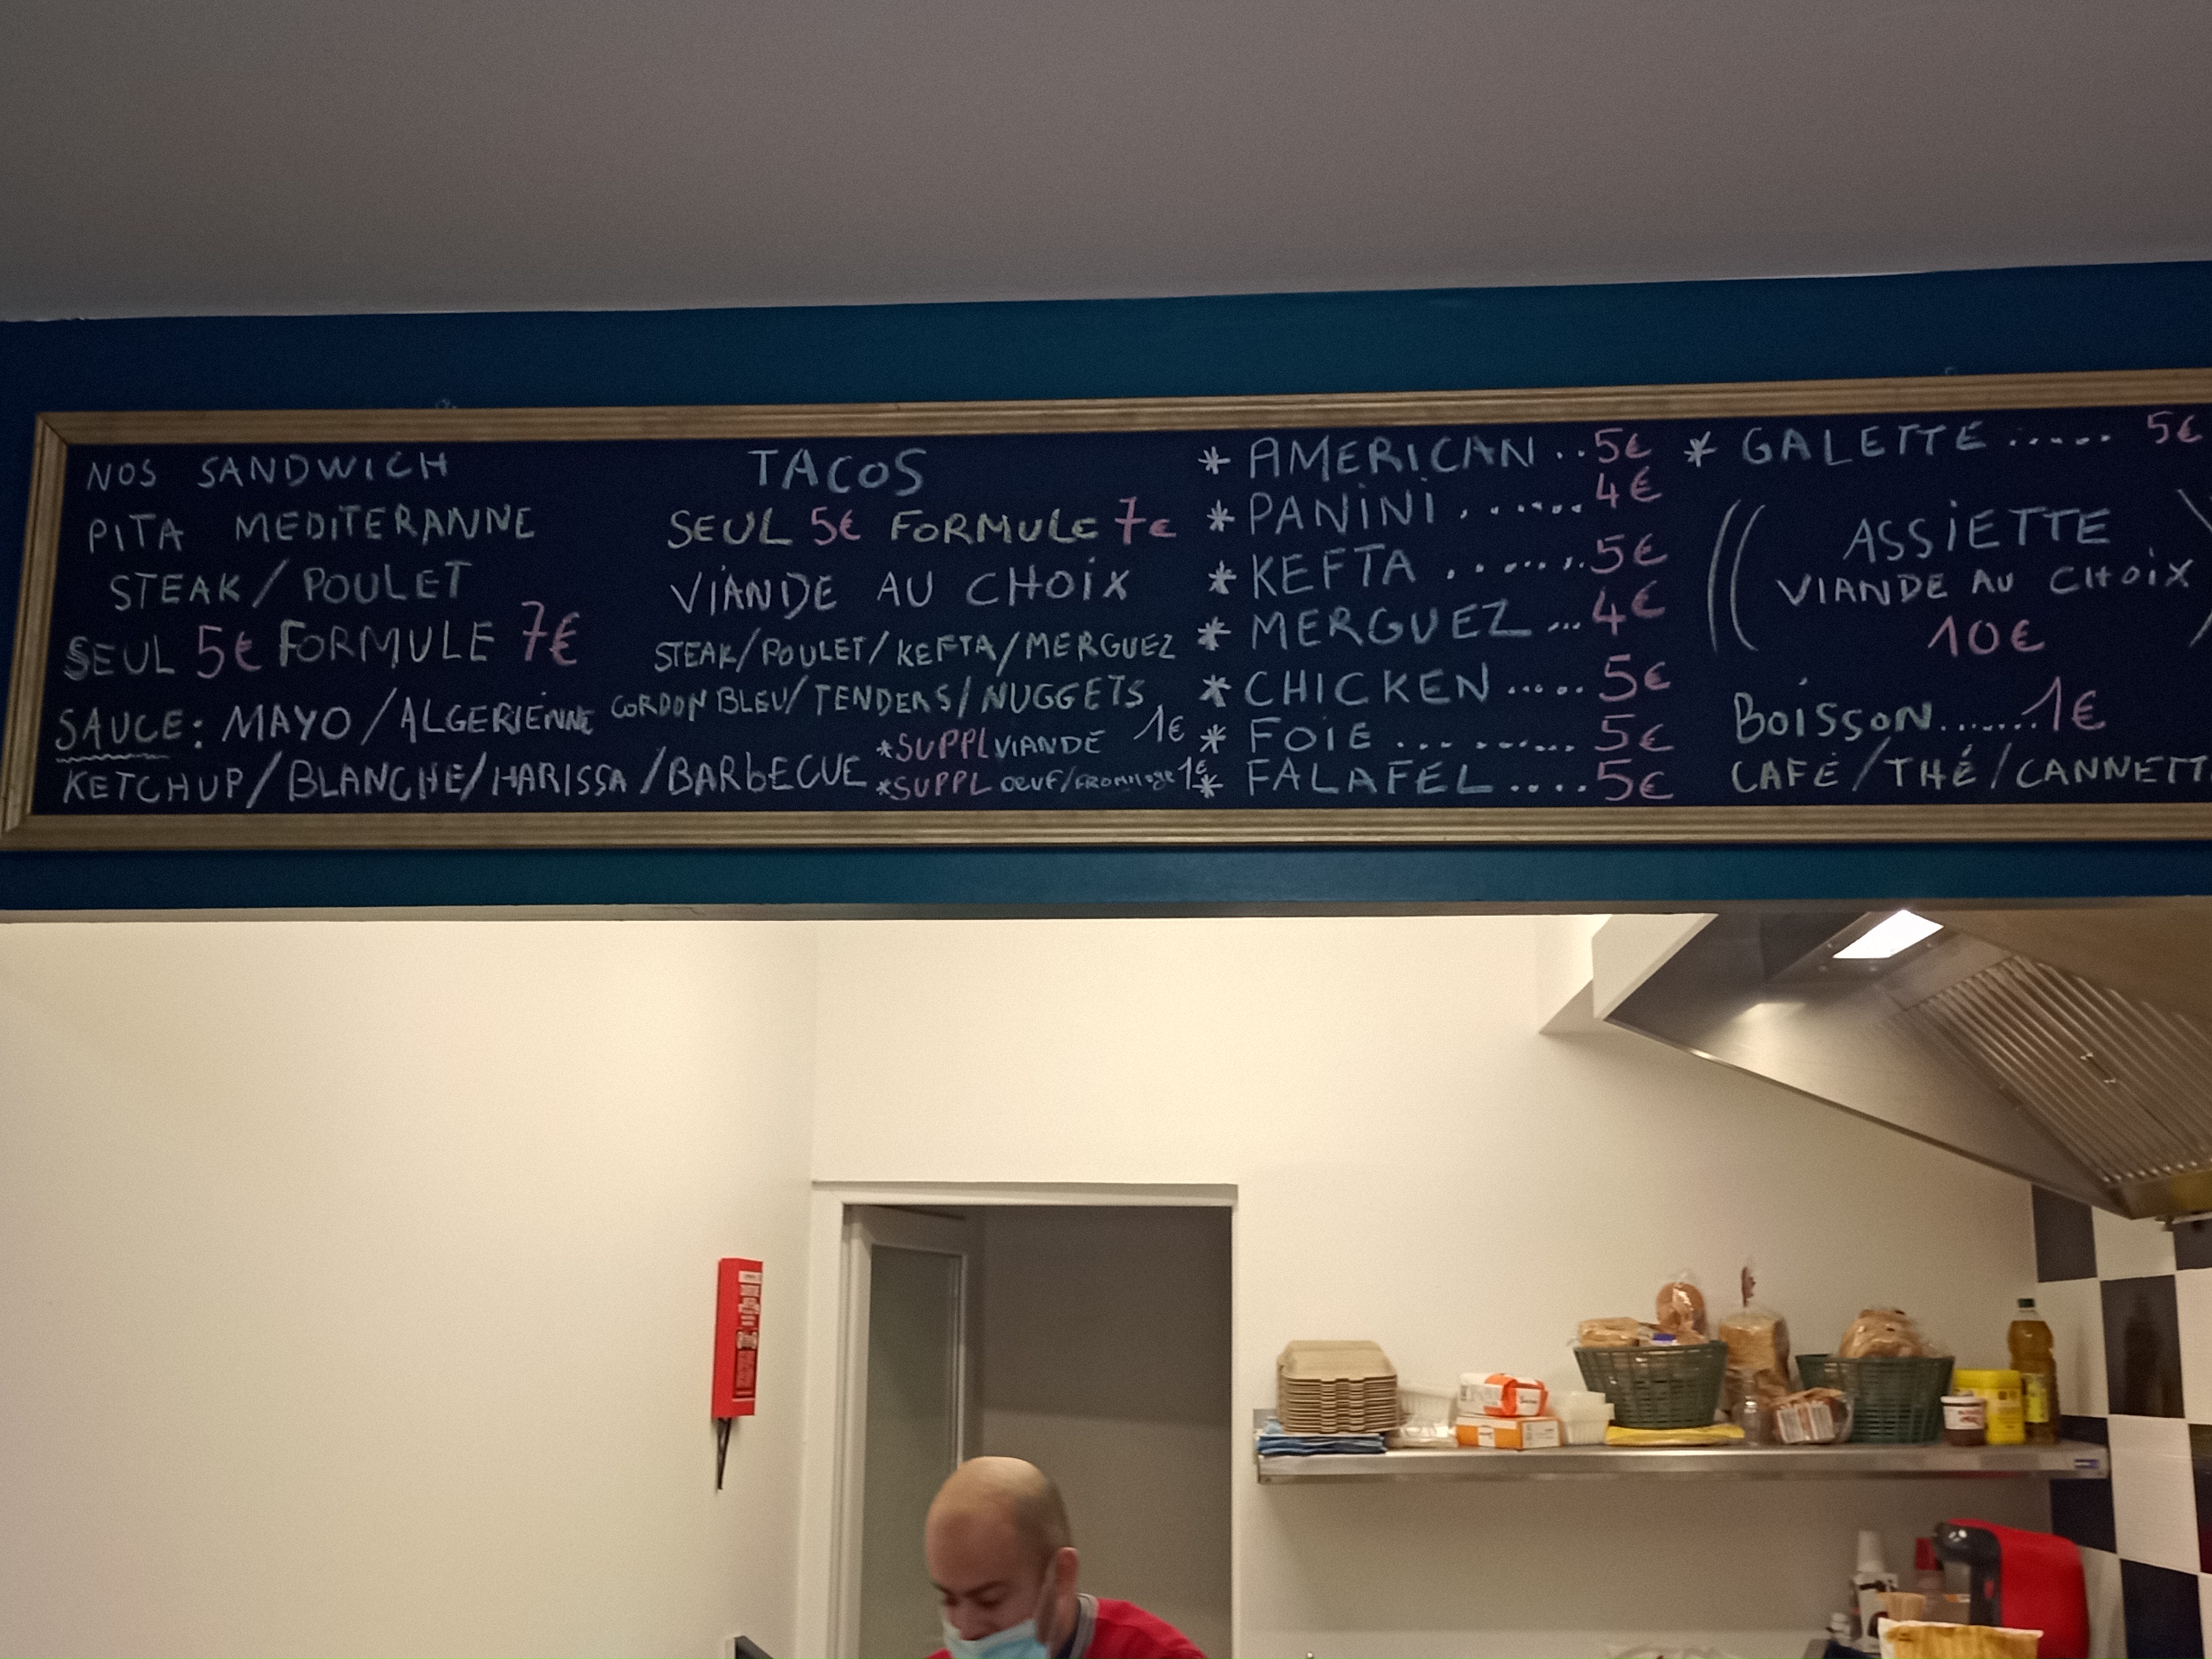 NOS SANDWICH
PITA MEDITERANNE
STEAK / POULET
SEUL 5€ FORMULE 7€
SAUCE: MAYO / ALGERIENNE
KETCHUP / BLANCHE / HARISSA / BARBECUE
TACOS
SEUL 5€ FORMULE 7€
VIANDE AU CHOIX
STEAK/POULET/KEFTA/MERGUEZ
CORDON BLEU/TENDERS/NUGGETS
*SUPPL VIANDE 1€
*SUPPL OEUF/FROMAGE 1€
* AMERICAN .. 5€
* PANINI ...... 4€
* KEFTA ....... 5€
* MERGUEZ ... 4€
* CHICKEN ..... 5€
* FOIE .......... 5€
* FALAFEL .... 5€
* GALETTE ...... 5€
ASSIETTE
VIANDE AU CHOIX
10€
BOISSON ....... 1€
CAFÉ / THÉ / CANNETT